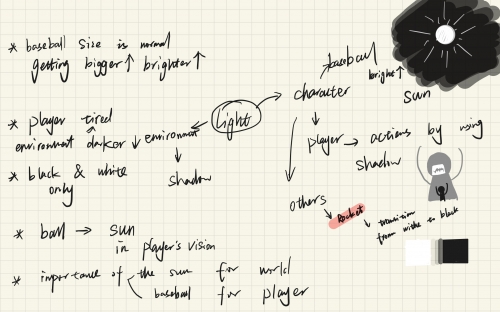 * baseball size is normal
getting bigger ↑ brighter ↑
* player tired
environment darker ↓
* black & white
only
* ball → sun
in player's vision
* importance of the sun for world
baseball for player
light
environment
shadow
character
baseball
bright ↑
sun
player → actions by using
shadow
others
transition
from white to black